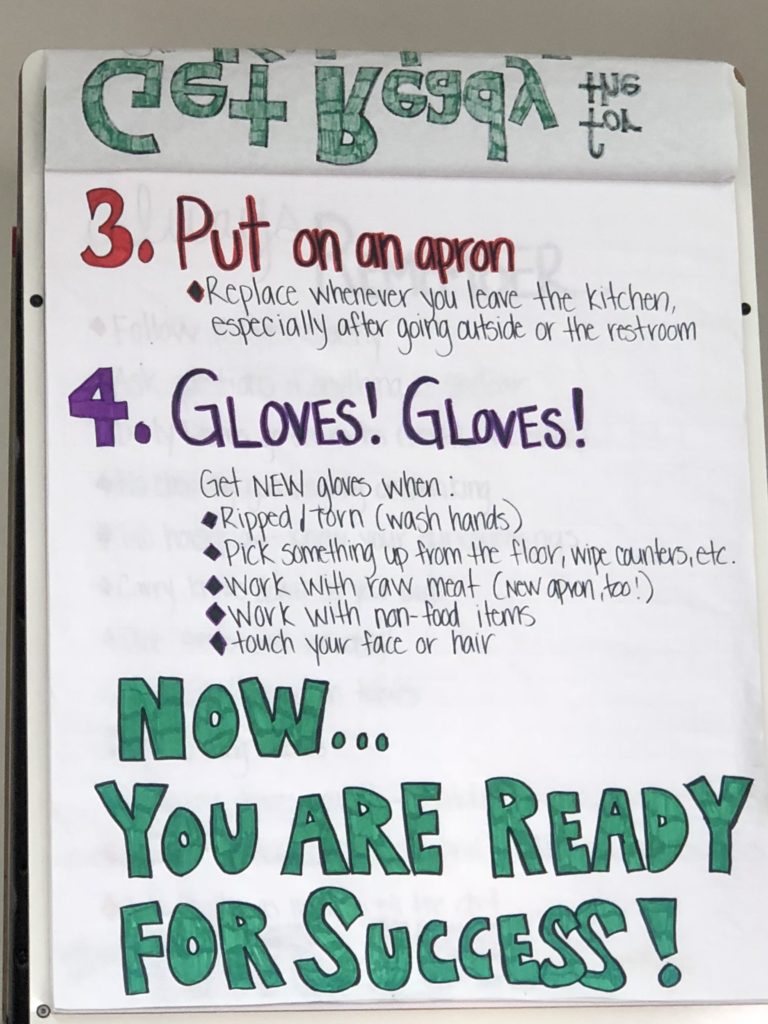 Get Ready for
the
3. Put on an apron
◆Replace whenever you leave the kitchen,
especially after going outside or the restroom
4. GLOVES! GLOVES!
Get NEW gloves when:
◆Ripped/torn (wash hands)
◆Pick something up from the floor, wipe counters, etc.
◆Work with raw meat (new apron, too!)
◆Work with non-food items
◆touch your face or hair
NOW...
YOU ARE READY
FOR SUCCESS!